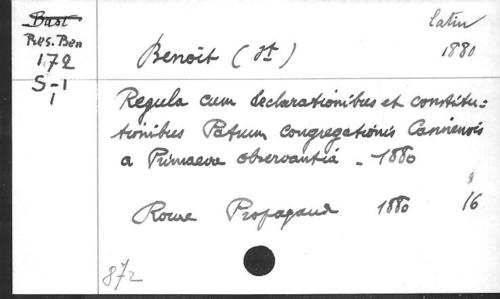 Bast
Res. Ben
172
S-1
1
latin
1880
Benoit (St)
Regula cum declarationibus et constitu=
tionibus Patrum congregationis Casinensis
a Primaeva observantiâ - 1880
Rome Propagand 1880
8
16
872